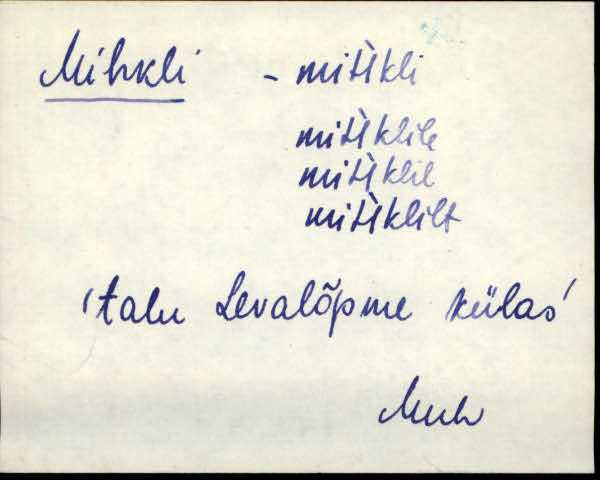 Mihkli - mihìkli
mihìklile
mihìklil
mihìklilt
'talu Levalõpme külas'
Muh